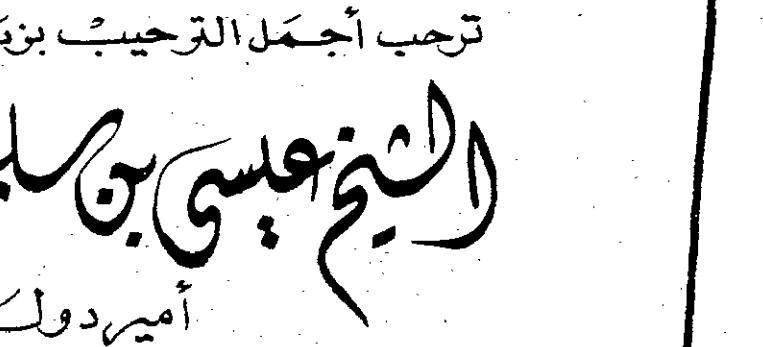 ترحب أجمل الترحيب
الشيخ عيسى بن
أمير